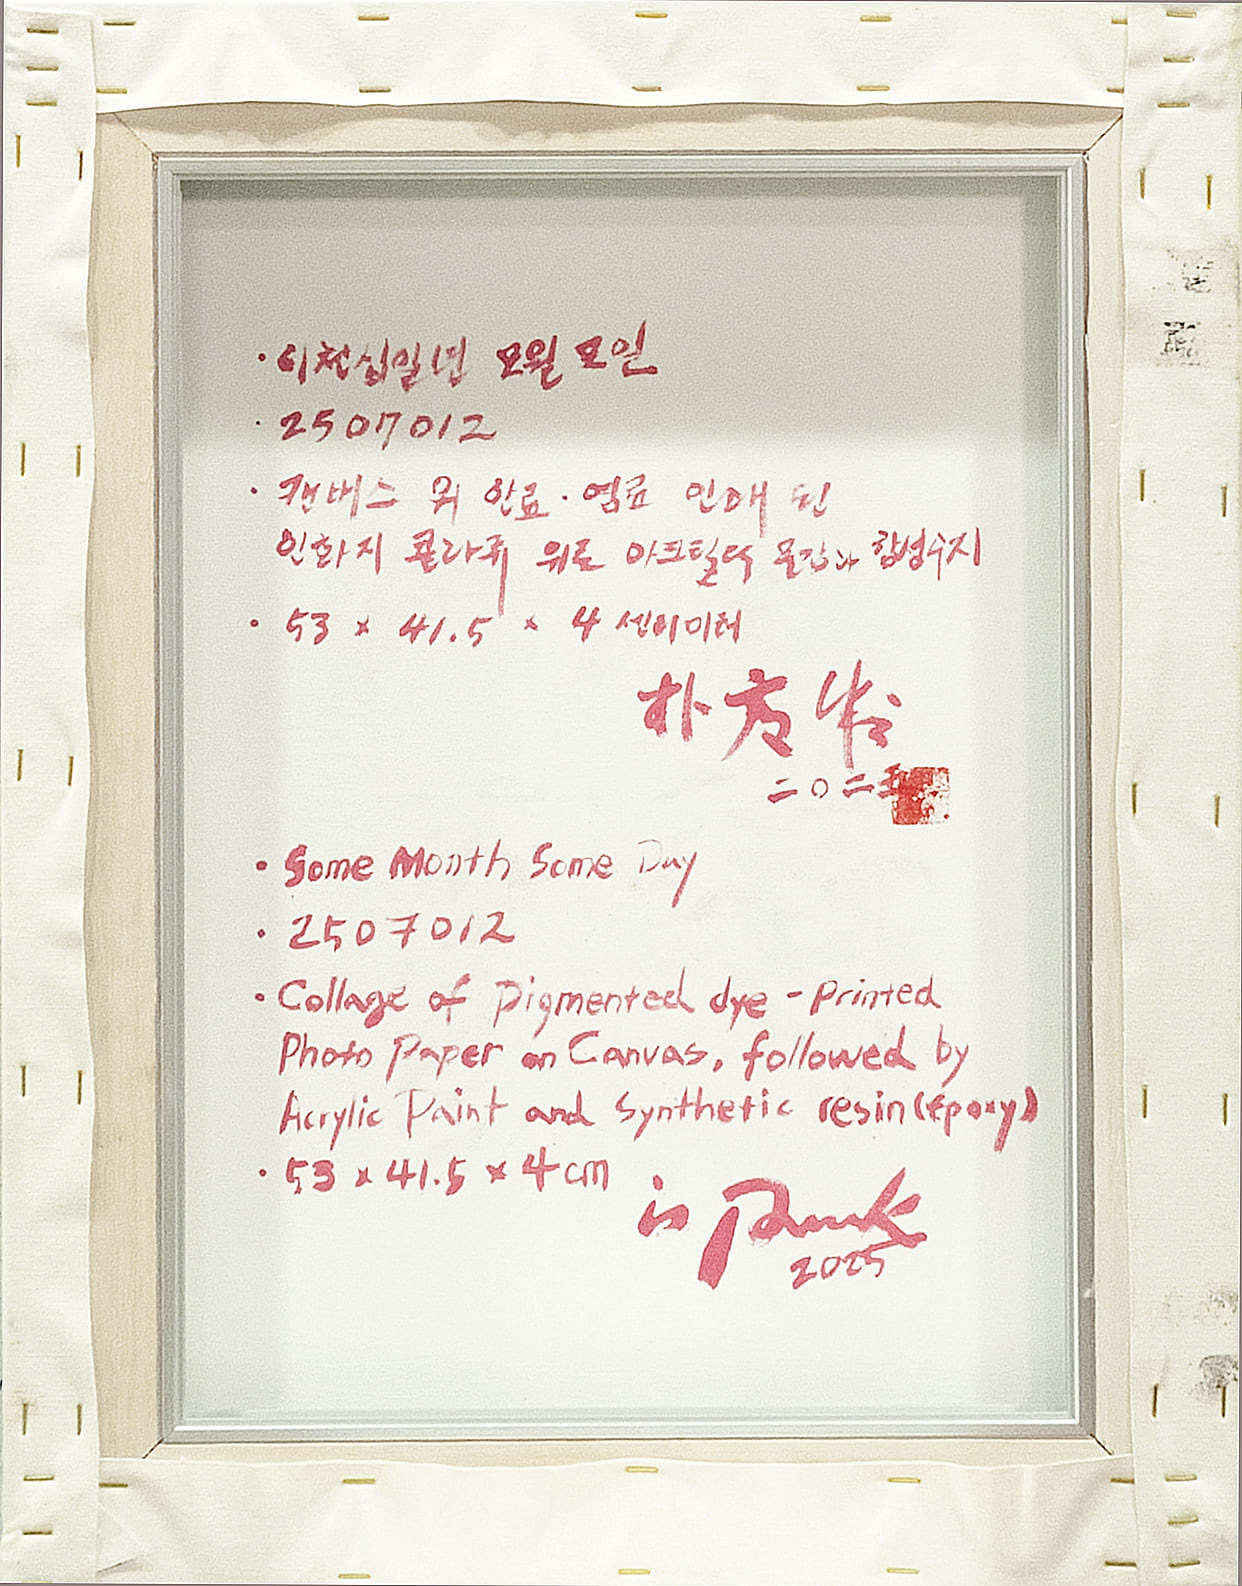 · 이천십일년 모월 모일
· 2507012
· 캔버스 위 안료·염료 인쇄 된
인화지 콜라쥬 위로 아크릴릭 물감과 합성수지
· 53 x 41.5 x 4 센티미터
朴方
二〇二五
· Some Month Some Day
· 2507012
· Collage of Pigmented dye-Printed
Photo Paper on Canvas, followed by
Acrylic Paint and Synthetic resin(epoxy)
· 53 x 41.5 x 4cm
Park
2025